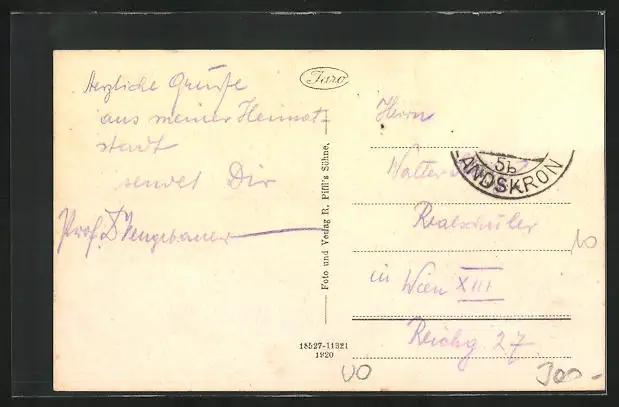 Herzliche Grüße
aus meiner Heimat-
stadt
sendet Dir
Prof. Neugebauer
Faro
Foto und Verlag R. Piffl's Söhne,
18527-11321
1920
Herrn
Walter
5b
LANDSKRON
Realschüler
in Wien XIII
Reichg 27
10
VO
300-